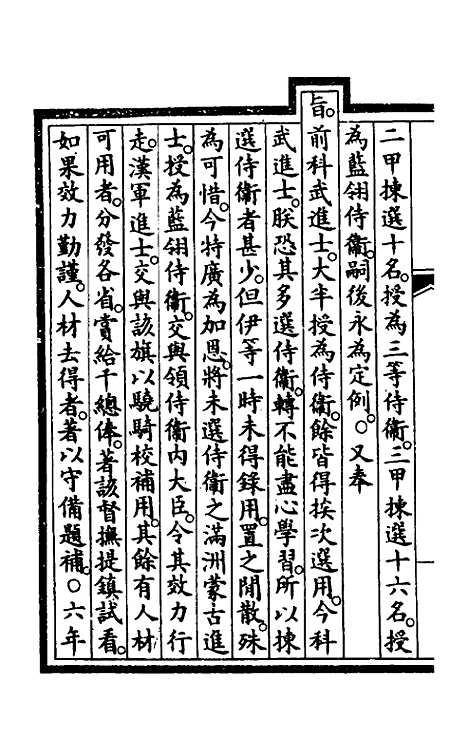 二甲揀選十名。授為三等侍衛。三甲揀選十六名。授
為藍翎侍衛。嗣後永為定例。○又奉
旨。前科武進士。大半授為侍衛。餘皆得挨次選用。今科
武進士。朕恐其多選侍衛。轉不能盡心學習。所以揀
選侍衛者甚少。但伊等一時未得錄用。置之閒散。殊
為可惜。今特廣為加恩。將未選侍衛之滿洲蒙古進
士。授為藍翎侍衛。交與領侍衛內大臣。令其效力行
走。漢軍進士。交與該旗以驍騎校補用。其餘有人材
可用者。分發各省。賞給千總俸。著該督撫提鎮試看。
如果效力勤謹。人材去得者。著以守備題補。○六年